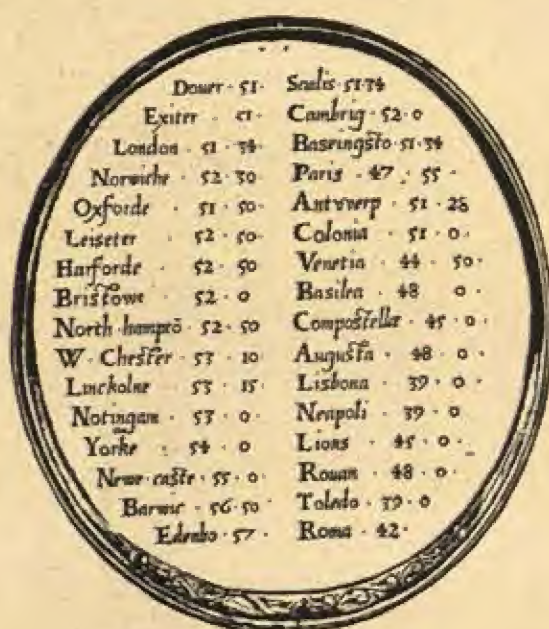 Douer · 51 ·
Exiter · 51 ·
London · 51 · 34 ·
Norwiche · 52 · 30
Oxforde · 51 · 50 ·
Leiseter · 52 · 50 ·
Harforde · 52 · 50
Bristowe · 52 · 0
North·hamptō · 52 · 50
W · Chester · 53 · 10
Linckolne · 53 · 15
Notingam · 53 · 0 ·
Yorke · 54 · 0
Newe·caste · 55 · 0 ·
Barwic · 56 · 50 ·
Edenbo · 57 ·
51·34
Cambrig · 52 · 0
Basingsto · 51·34
Paris · 47 · 55 ·
Antwerp · 51 · 28
Colonia · 51 · 0 ·
Venetia · 44 · 50 ·
Basilea · 48 · 0 ·
Compostellæ · 45 · 0 ·
Augusta · 48 · 0 ·
Lisbona · 39 · 0 ·
Neapoli · 39 · 0
Lions · 45 · 0 ·
Rouan · 48 · 0 ·
Toledo · 39 · 0
Roma · 42 ·